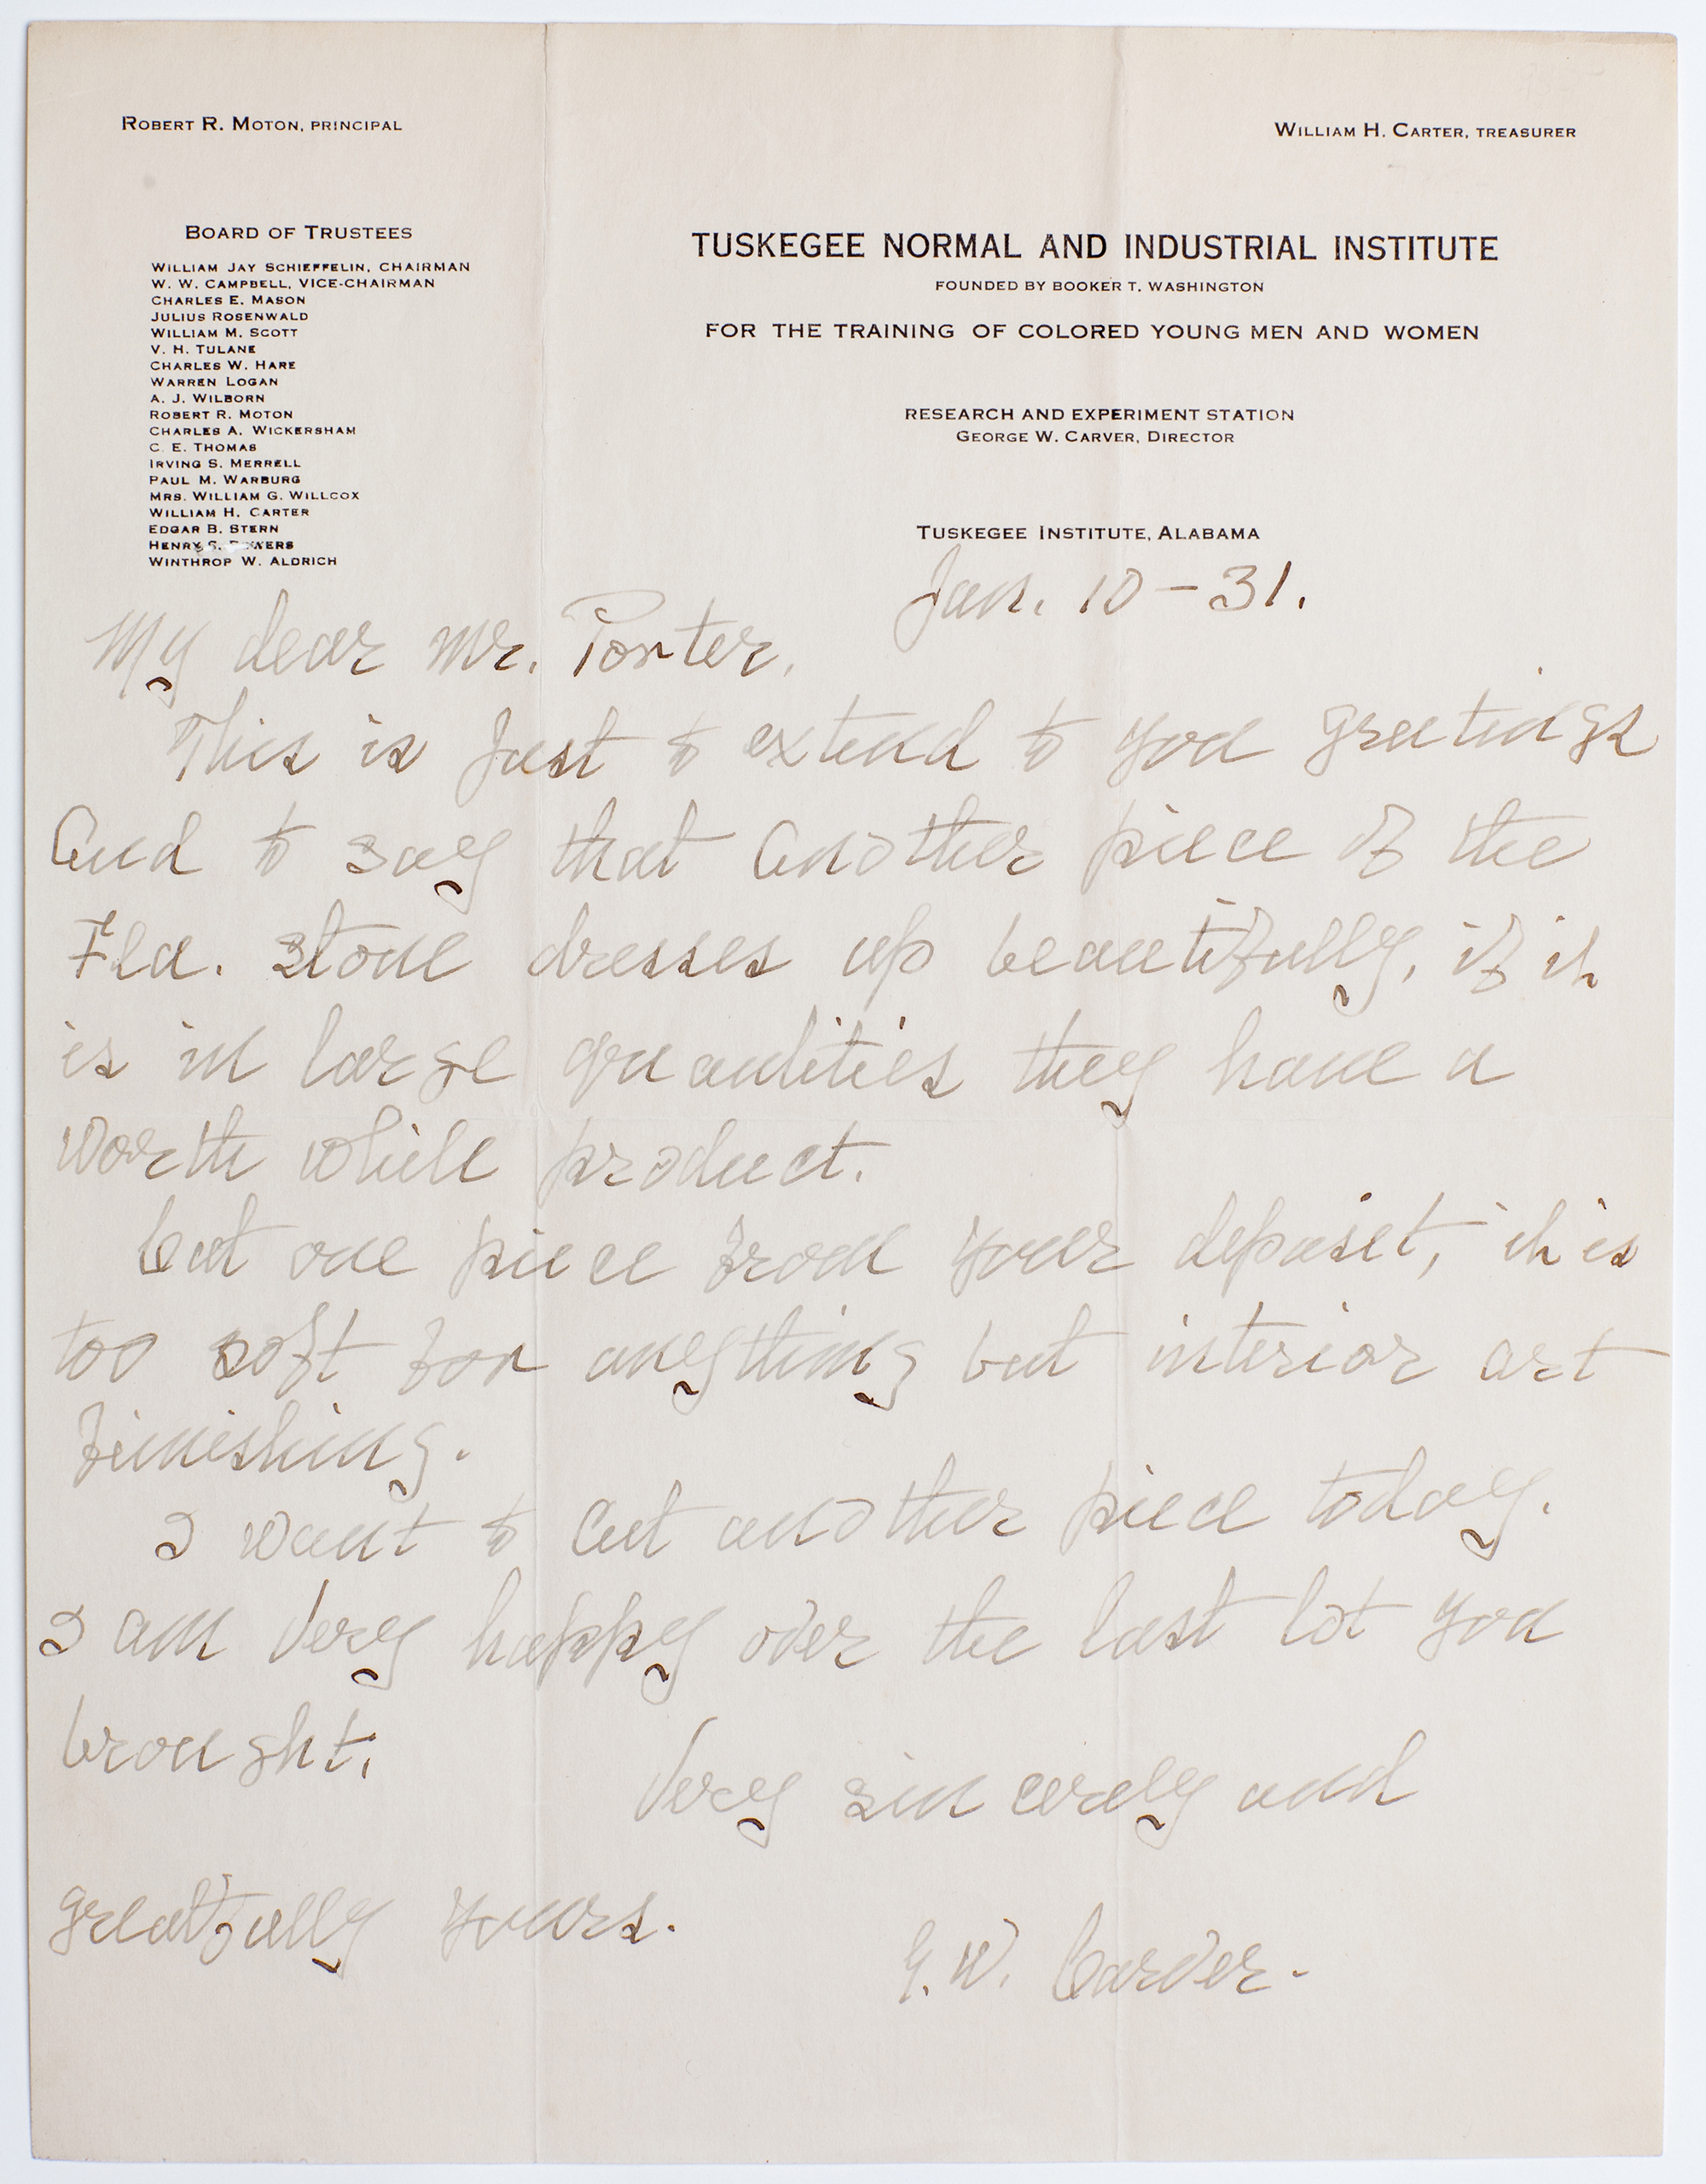 ROBERT R. MOTON, PRINCIPAL
WILLIAM H. CARTER, TREASURER
BOARD OF TRUSTEES
WILLIAM JAY SCHIEFFELIN, CHAIRMAN
W. W. CAMPBELL, VICE-CHAIRMAN
CHARLES E. MASON
JULIUS ROSENWALD
WILLIAM M. SCOTT
V. H. TULANE
CHARLES W. HARE
WARREN LOGAN
A. J. WILBORN
ROBERT R. MOTON
CHARLES A. WICKERSHAM
C. E. THOMAS
IRVING S. MERRELL
PAUL M. WARBURG
MRS. WILLIAM G. WILLCOX
WILLIAM H. CARTER
EDGAR B. STERN
HENRY
WINTHROP W. ALDRICH
TUSKEGEE NORMAL AND INDUSTRIAL INSTITUTE
FOUNDED BY BOOKER T. WASHINGTON
FOR THE TRAINING OF COLORED YOUNG MEN AND WOMEN
RESEARCH AND EXPERIMENT STATION
GEORGE W. CARVER, DIRECTOR
TUSKEGEE INSTITUTE, ALABAMA
Jan. 10 - 31.
My dear Mr. Porter,
This is just to extend to you greetings
and to say that another piece of the
Fla. stone dresses up beautifully, if it
is in large quantities they have a
worth while product.
Cut one piece from your deposit, it is
too soft for anything but interior art
finishing.
I want to cut another piece today.
I am very happy over the last lot you
brought.
Very sincerely and
greatfully yours.
G. W. Carver.